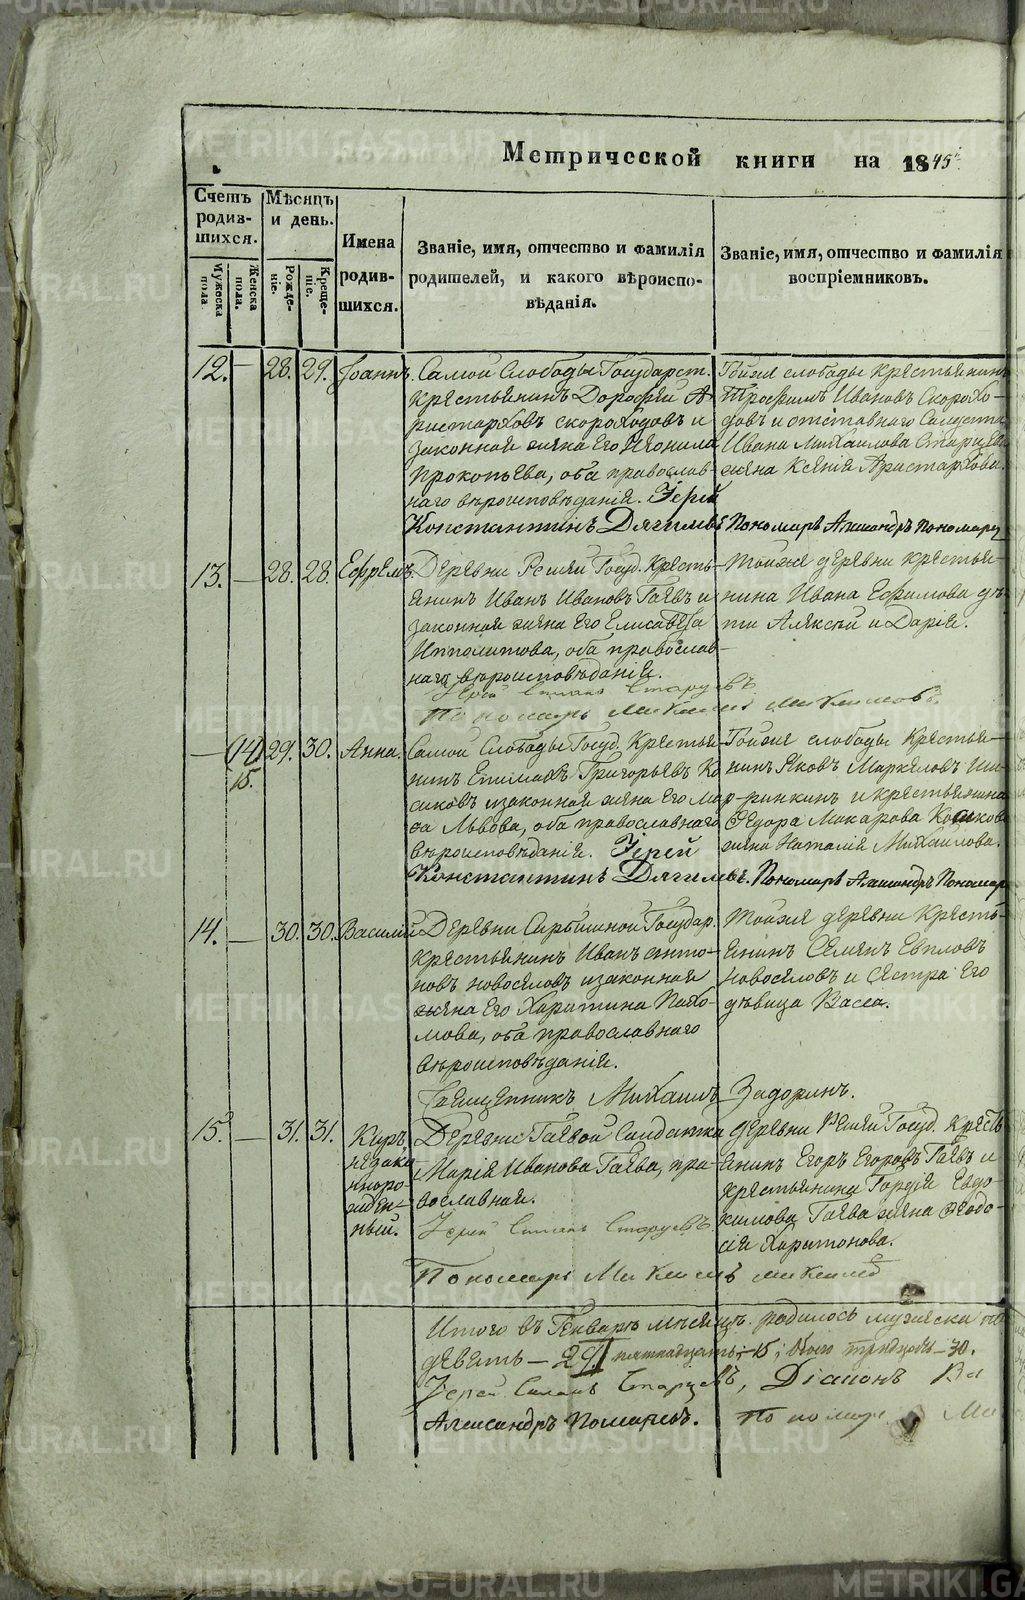 Метрической книги на 1845.
Счетъ родившихся.
Мужеска пола
Женска пола.
Мѣсяцъ и день.
Рожденіе.
Крещеніе.
Имена родившихся.
Званіе, имя, отчество и фамилія родителей, и какого вѣроисповѣданія.
Званіе, имя, отчество и фамилія воспріемниковъ.
12. — 28. 29. Іоаннъ.
Самой Слободы Государст.
крестьянинъ Дорофей А-
ристарховъ скороходовъ и
законная жена Его Неонила
Прокопьева, оба православ-
наго вѣроисповѣданія. Іерей
Константинъ Дягилевъ
Тойжя слободы крестьянинъ
Трофимъ Ивановъ Скорохо-
довъ и отставнаго Солдата
Ивана Михаилова Старцева
жена Ксенія Аристархова.
Пономарь Александръ Пономарев
13. — 28. 28. Ефремъ.
Деревни Речей Госуд. Кресть-
янинъ Иванъ Ивановъ Гаевъ и
законная жена Его Елисавета
Ипполитова, оба православ-
наго вѣроисповѣданія.
Іерей Стахъ Старцевъ
Пономарь Максимъ Максимовъ
Тойжя деревни крестья-
нина Ивана Ефимова дѣ-
ти Алексѣй и Дарія.
— 14 15. 29. 30. Анна.
Самой Слободы Госуд. Крестья-
нинъ Епимахъ Григорьевъ Ко-
сиковъ изаконная жена Его Мар-
ѳа Львова, оба православнаго
вѣроисповѣданія. Іерей
Константинъ Дягилевъ.
Тойжя слободы Крестья-
нинъ Яковъ Маркеловъ Ши-
ринкинъ и крестьянина
Ѳедора Макарова Косиков
жена Наталія Михайлова.
Пономарь Александръ Пономар
14. — 30. 30. Василій
Деревни Сарбишной Государ.
крестьянинъ Иванъ Анто-
новъ новоселовъ изаконная
жена Его Харитина Пахо-
мова, оба православнаго
вѣроисповѣданія.
Тойжя деревни Кресть-
янинъ Семенъ Евпловъ
Новоселовъ и Сестра Его
дѣвица Васса.
Священникъ Михаилъ Задоринъ.
15. — 31. 31. Киръ,
незако
ннорo
жден-
ный.
Деревни Гаевой Солдатка
Марія Иванова Гаева, пра-
вославная.
Іерей Стахъ Старцевъ.
Пономарь Максимъ Максимов
Деревни Речей Госуд. Кресть
янинъ Егоръ Егоровъ Гаевъ и
крестьянина Гордѣя Евдо-
кимова Гаева жена Ѳеодо-
сія Харитонова.
Итого въ Генварѣ мѣсяцѣ родилось мужеска по
девять — 29 пятнадцать — 15; Обоего тридцать — 30.
Іерей Стахъ Старцевъ, Діаконъ Ва
Александръ Помарeвъ. Пономарь Ма
METRIKI.GASO-URAL.RU